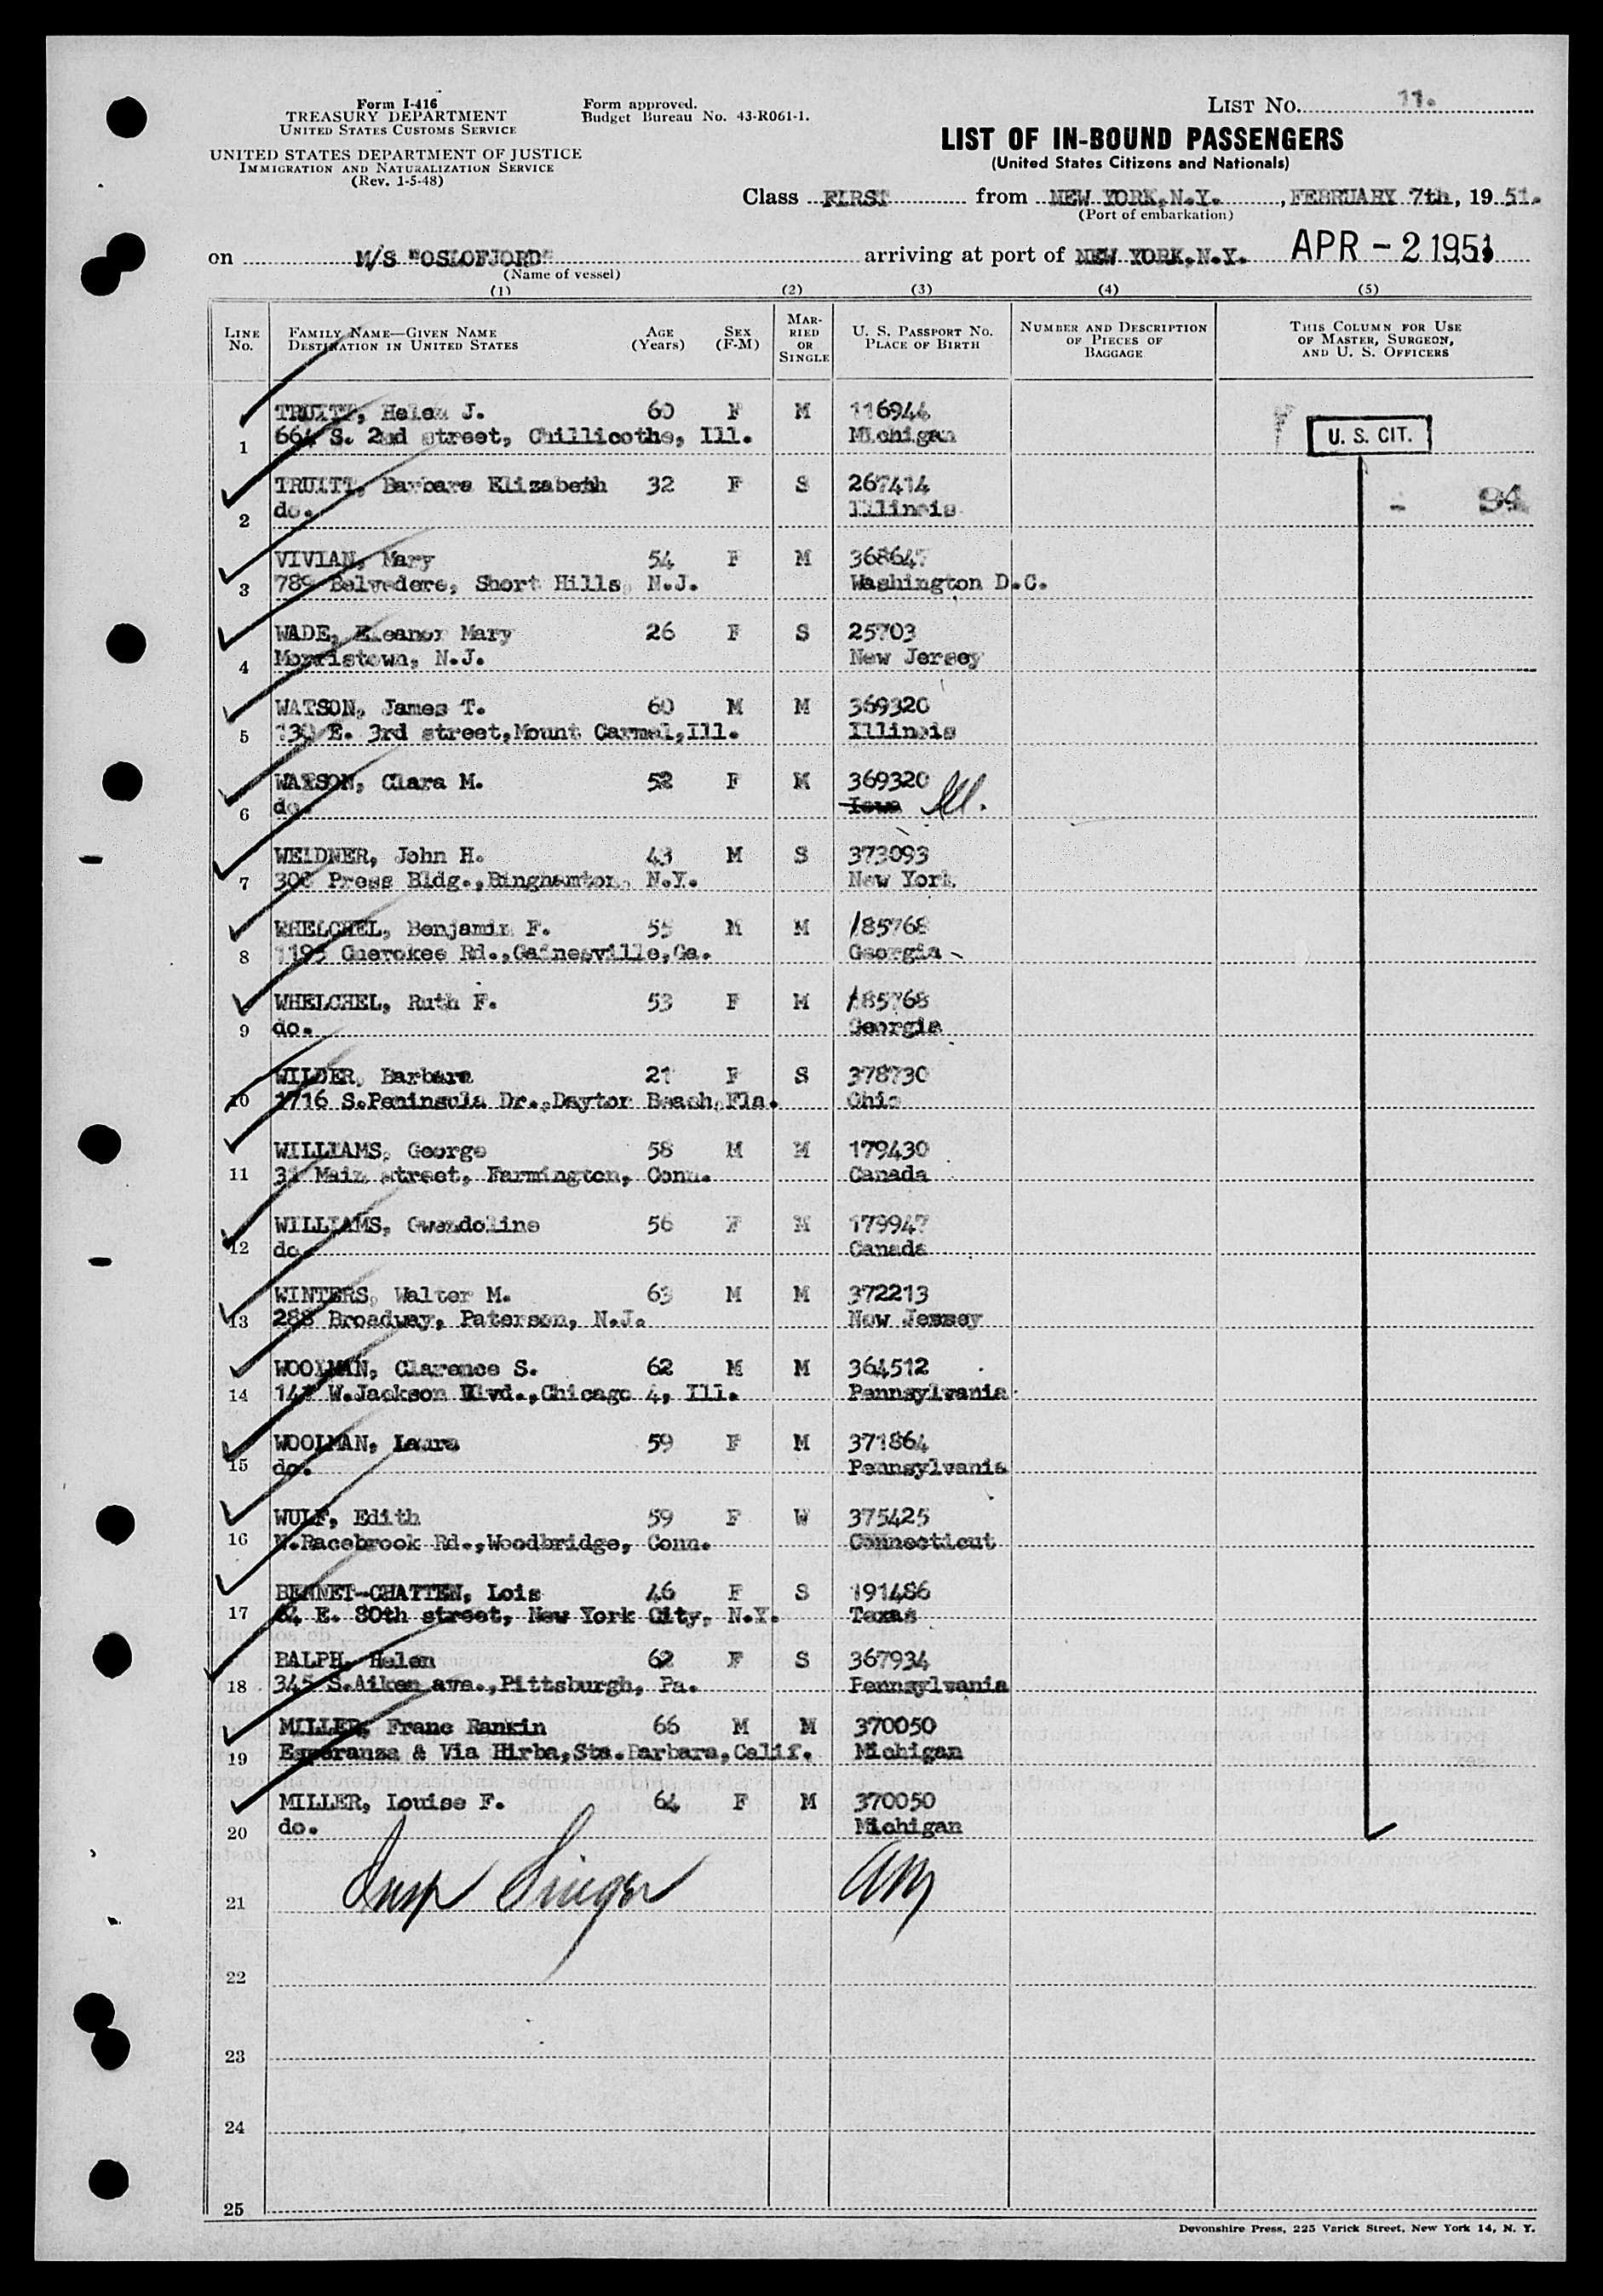 Form I-416
TREASURY DEPARTMENT
UNITED STATES CUSTOMS SERVICE
UNITED STATES DEPARTMENT OF JUSTICE
IMMIGRATION AND NATURALIZATION SERVICE
(Rev. 1-5-48)
Form approved.
Budget Bureau No. 43-R061-1.
LIST NO. 11.
LIST OF IN-BOUND PASSENGERS
(United States Citizens and Nationals)
Class FIRST from NEW YORK, N.Y., FEBRUARY 7th, 1951.
(Port of embarkation)
on M/S "OSLOFJORD" arriving at port of NEW YORK, N.Y. APR - 2 1951
(Name of vessel)
(1) (2) (3) (4) (5)
LINE NO. FAMILY NAME—GIVEN NAME DESTINATION IN UNITED STATES AGE (Years) SEX (F-M) MARRIED OR SINGLE U. S. PASSPORT NO. PLACE OF BIRTH NUMBER AND DESCRIPTION OF PIECES OF BAGGAGE THIS COLUMN FOR USE OF MASTER, SURGEON, AND U. S. OFFICERS
TRUITT, Helen J. 60 F M 116944
1 664 S. 2nd street, Chillicothe, Ill. Michigan U. S. CIT.
TRUITT, Barbara Elizabeth 32 F S 267414
2 do. Illinois
VIVIAN, Mary 54 F M 368647
3 789 Belvedere, Short Hills, N.J. Washington D.C.
WADE, Eleanor Mary 26 F S 25703
4 Morristown, N.J. New Jersey
WATSON, James T. 60 M M 369320
5 130 E. 3rd street,Mount Carmel,Ill. Illinois
WATSON, Clara M. 52 F M 369320
6 do. Iowa Ill.
WEIDNER, John H. 43 M S 373093
7 308 Press Bldg.,Binghamton, N.Y. New York
WHELCHEL, Benjamin F. 55 M M 185768
8 1195 Cherokee Rd.,Gainesville,Ga. Georgia
WHELCHEL, Ruth F. 53 F M 185768
9 do. Georgia
WILDER, Barbara 21 F S 378730
10 1716 S.Peninsula Dr.,Dayton Beach,Fla. Ohio
WILLIAMS, George 58 M M 179430
11 31 Main street, Farmington, Conn. Canada
WILLIAMS, Gwendoline 56 F M 179947
12 do. Canada
WINTERS, Walter M. 63 M M 372213
13 288 Broadway, Paterson, N.J. New Jersey
WOOLMAN, Clarence S. 62 M M 364512
14 141 W.Jackson Blvd.,Chicago 4, Ill. Pennsylvania
WOOLMAN, Laura 59 F M 371864
15 do. Pennsylvania
WULF, Edith 59 F W 375425
16 N.Racebrook Rd.,Woodbridge, Conn. Connecticut
BENNET-CHATTEN, Lois 46 F S 191486
17 64 E. 80th street, New York City, N.Y. Texas
BALPH, Helen 62 F S 367934
18 345 S.Aiken ave.,Pittsburgh, Pa. Pennsylvania
MILLER, Franc Rankin 66 M M 370050
19 Esperanza & Via Hirba,Sta.Barbara,Calif. Michigan
MILLER, Louise F. 64 F M 370050
20 do. Michigan
21 Insp Singer
22
23
24
25
Devonshire Press, 225 Varick Street, New York 14, N. Y.